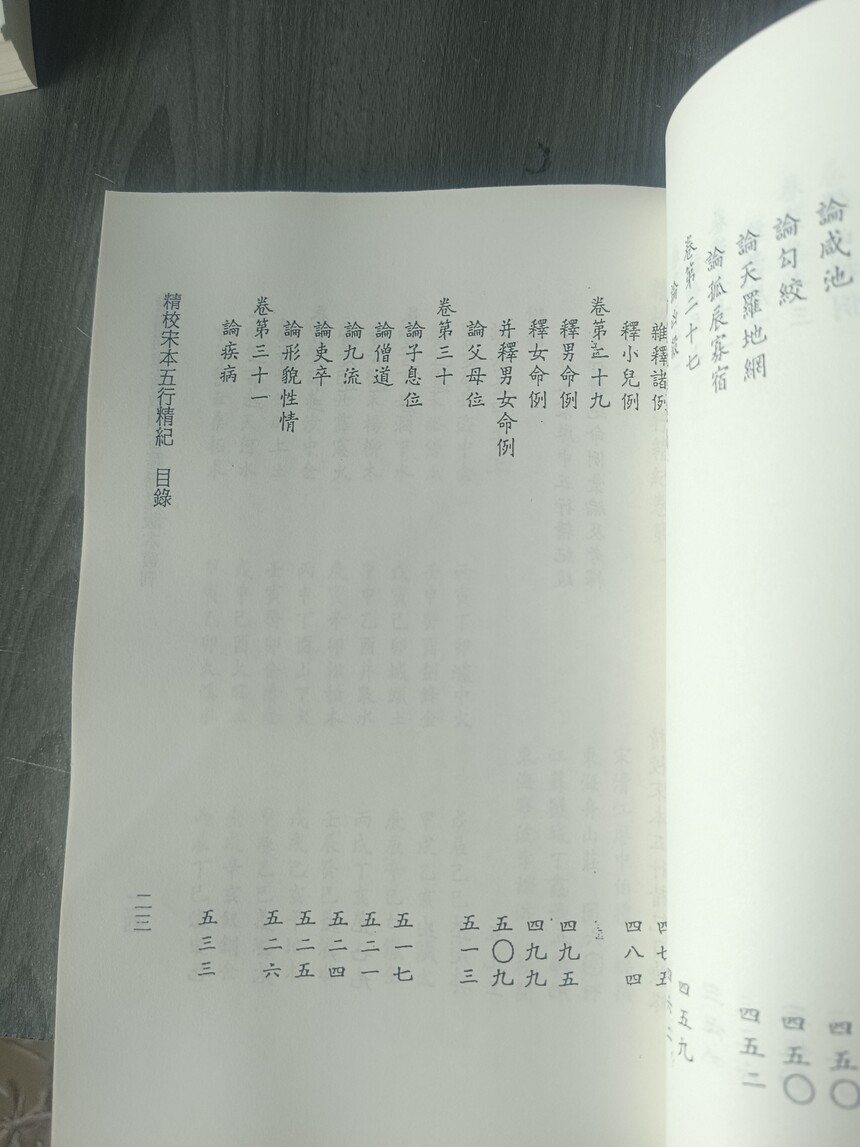 論咸池 四五〇
論勾絞 四五〇
論天羅地網 四五二
論孤辰寡宿
卷第二十七
四五九
雜釋諸例 四七五
釋小兒例 四八四
卷第二十九
釋男命例 四九五
釋女命例 四九九
并釋男女命例 五〇九
論父母位 五一三
卷第三十
論子息位 五一七
論僧道 五二一
論九流 五二四
論吏卒 五二五
論形貌性情 五二六
卷第三十一
論疾病 五三三
精校宋本五行精紀 目錄 二三